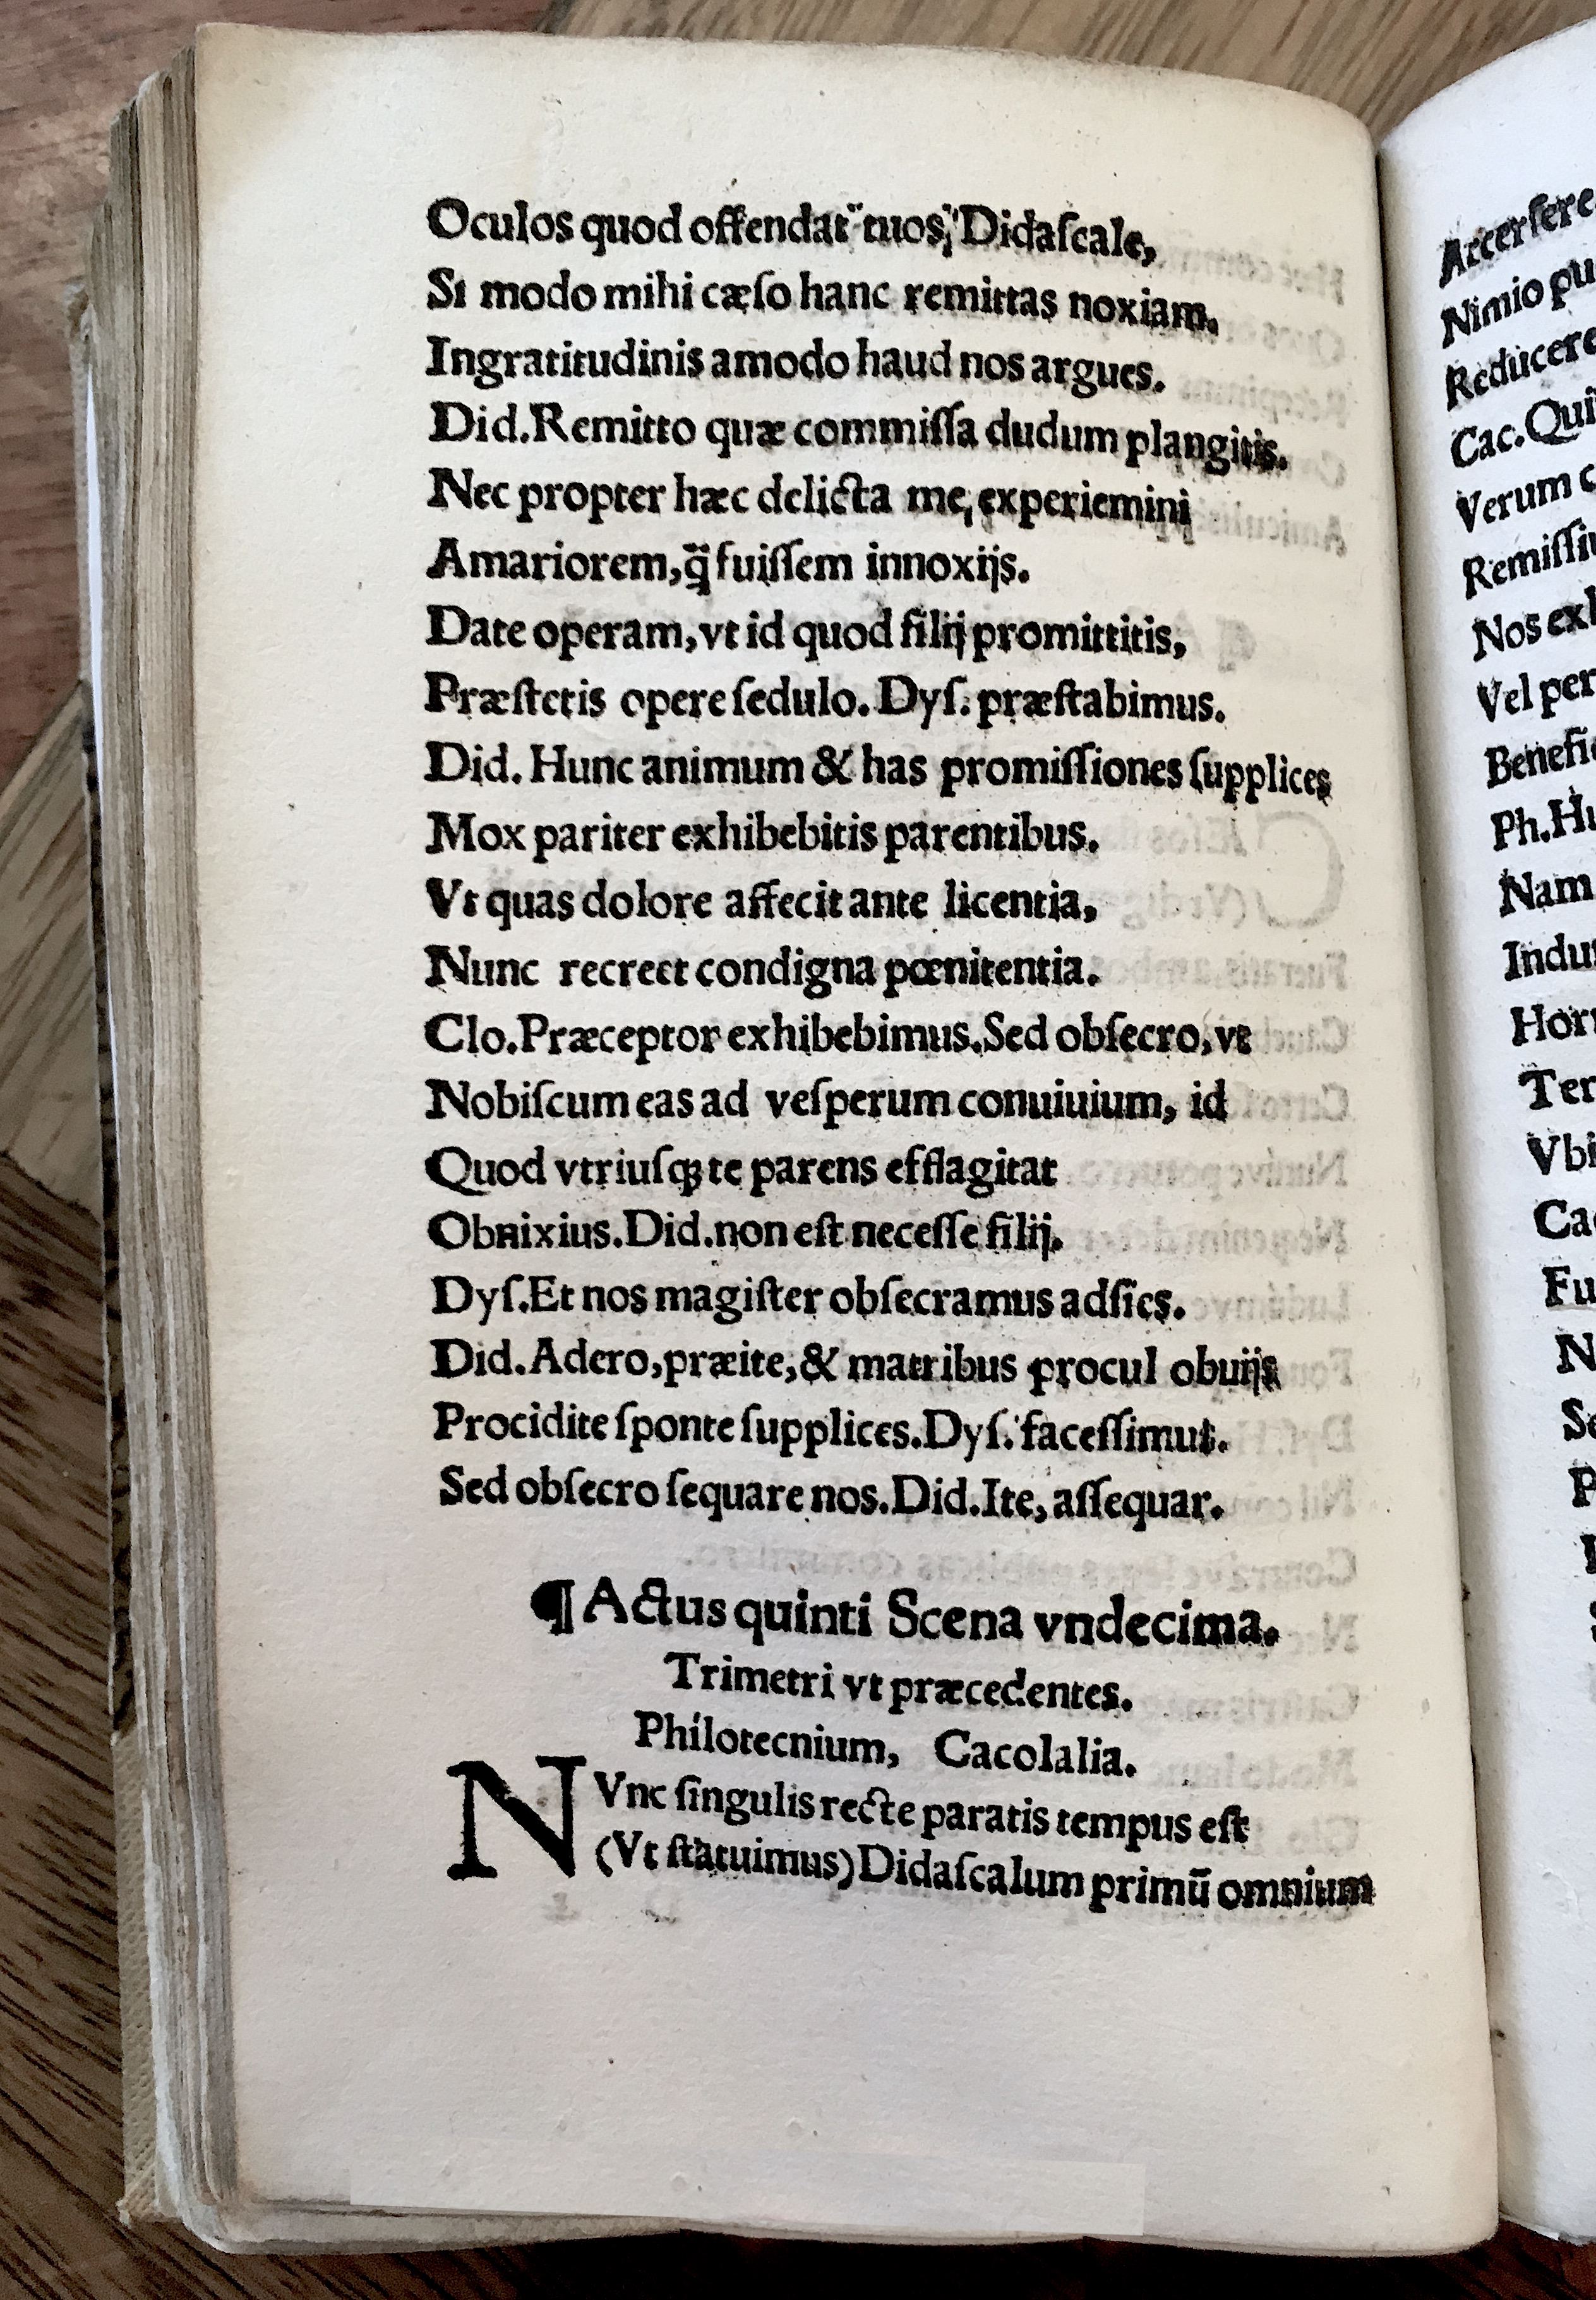 Oculos quod offendat tuos, Didaſcale,
Si modo mihi cæſo hanc remittas noxiam.
Ingratitudinis amodo haud nos argues.
Did.Remitto quæ commiſſa dudum plangitis.
Nec propter hæc delicta me, experiemini
Amariorem, q̃ fuiſſem innoxijs.
Date operam, vt id quod filij promittitis,
Præſtetis opere ſedulo. Dyſ. præſtabimus.
Did. Hunc animum & has promiſſiones ſupplices
Mox pariter exhibebitis parentibus.
Vt quas dolore affecit ante licentia,
Nunc recreet condigna pœnitentia.
Clo.Præceptor exhibebimus.Sed obſecro, vt
Nobiſcum eas ad veſperum conuiuium, id
Quod vtriuſqꝫ te parens efflagitat
Obnixius.Did.non eſt neceſſe filij.
Dyſ.Et nos magiſter obſecramus adſies.
Did.Adero, præite, & matribus procul obuijs
Procidite ſponte ſupplices.Dyſ. faceſſimus.
Sed obſecro ſequare nos.Did.Ite, aſſequar.
¶ Actus quinti Scena vndecima.
Trimetri vt præcedentes.
Philotecnium, Cacolalia.
NVnc ſingulis recte paratis tempus eſt
(Vt ſtatuimus) Didaſcalum primū omnium
Nimio pu
Cac.Qui
Verum c
Nos exh
Vel per
Ph.Hu
Nam
Ter